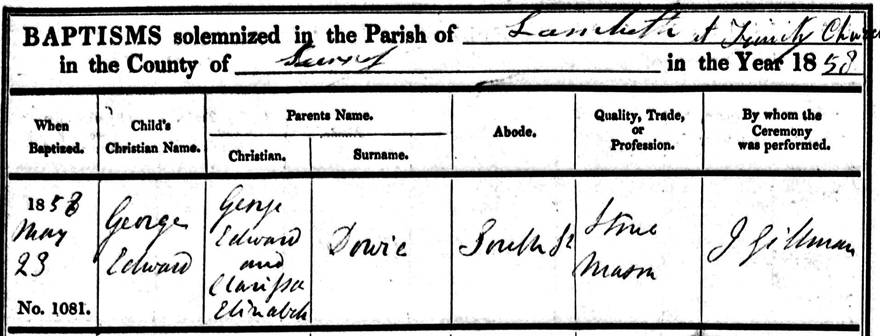 BAPTISMS solemnized in the Parish of Lambeth at Trinity Church
in the County of Surrey in the Year 1858
When Baptized.
Child's Christian Name.
Parents Name.
Christian.
Surname.
Abode.
Quality, Trade, or Profession.
By whom the Ceremony was performed.
1858
May
23
No. 1081.
George
Edward
George
Edward
and
Clarissa
Elizabeth
Dowie
South St
Stone
Mason
J Gillman